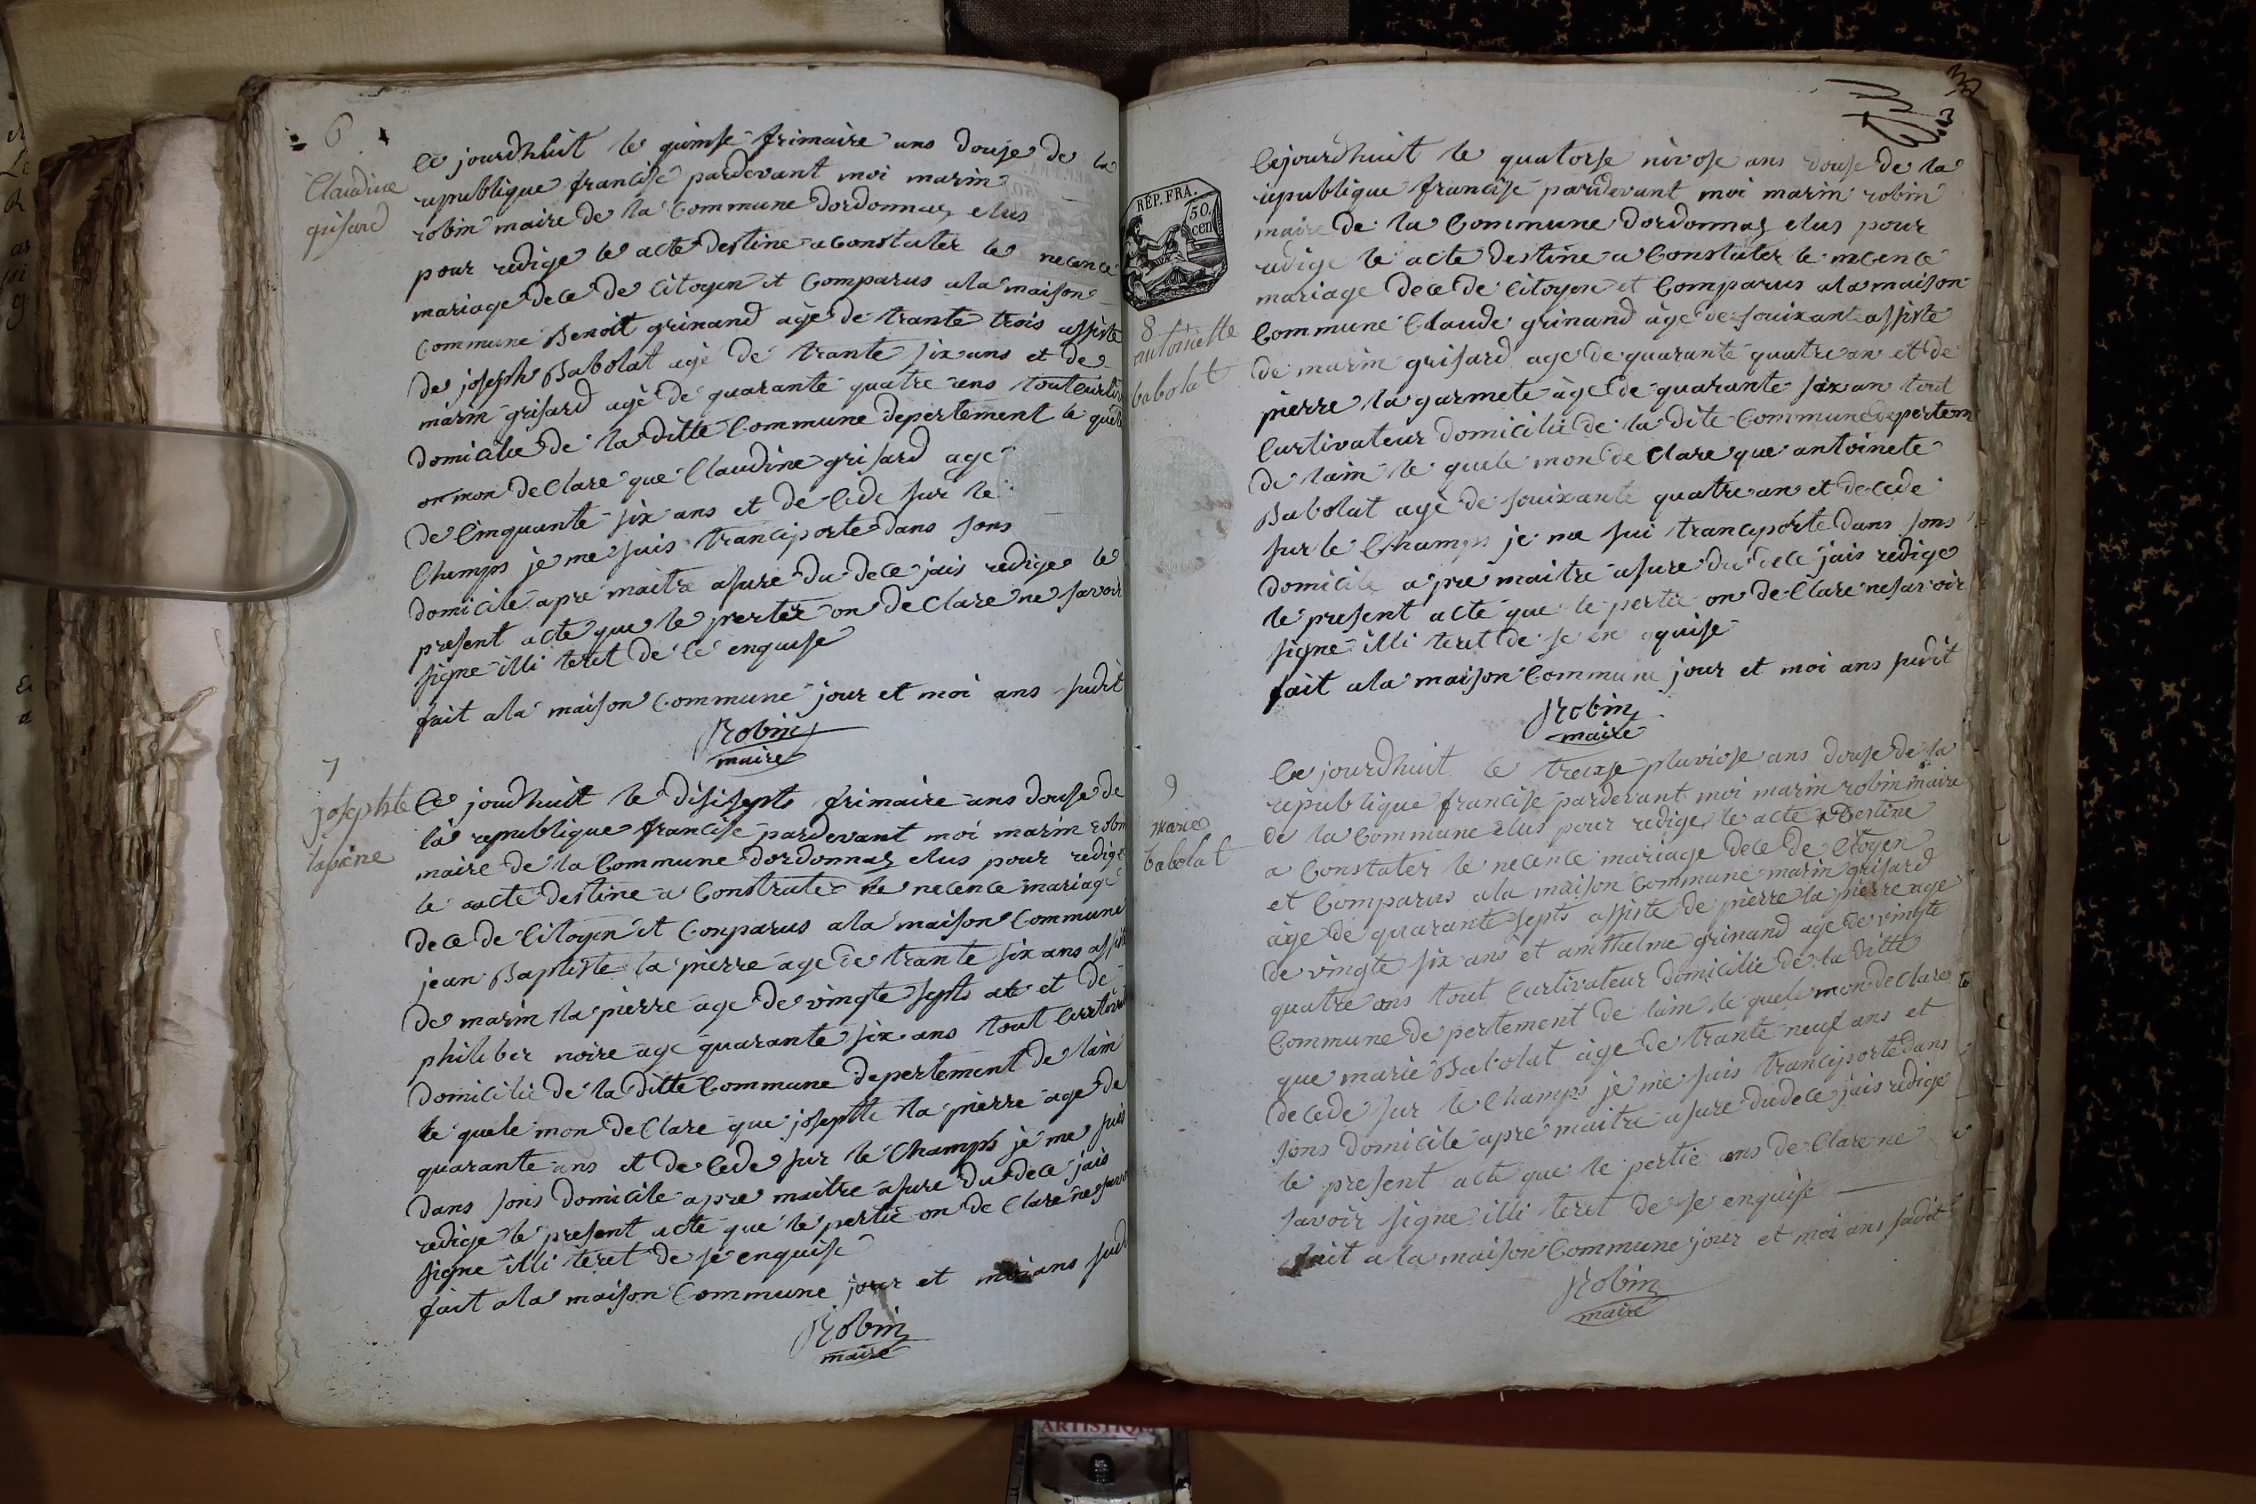 6
Claudine
grisard
Ce jourdhuit le quinse frimaire ans douse de la
republique francise pardevant moi marin
robin maire de la Commune dordonnas elus
pour redige le acte destine a Constater le necence
mariage dece de Citoyen et Comparus ala maison
Commune Benoit grinand âge de trante trois assiste
de joseph Babolat agé de trante six ans et de
marin grisard agé de quarante quatre ans tout
domicilie de la ditte Commune depertement le
on mon declare que Claudine grisard age
de Cinquante six ans et de Cede sur le
Champs je me suis transiporte dans sons
domicile apre maitre asure du dece jais redige le
present acte que le pertie on de Clare ne savoir
signe illi teret de Cé enquise
fait ala maison Commune jour et moi ans sudit
Robin
maire
7
josephte
lapiere
Ce jourdhuit le disisepts frimaire ans douse de
la republique francise pardevant moi marin robin
maire de la Commune dordonnas elus pour redige
le acte destine a Constrater le necence mariage
dece de Citoyen et Conparus ala maison Commune
jean Baptiste la pierre age de trante six ans
de marin la pierre age de vingte septs at et de
philiber noire age quarante six ans tout
domicilie de la ditte Commune depertement de lain
le quele mon de Clare que josephte la pierre age de
quarante ans et de Cede sur le Champs je me suis
dans sons domicile apre maitre asure du dece jais
redige le present acte que le pertie on de Clare ne
signe illi teret de se enquise
fait ala maison Commune jour et moi ans sudit
Robin
maire
32
REP. FRA.
50.
cen
8
antoinette
babolat
Cejourdhuit le quatorse nivose ans douse de la
republique francise pardevant moi marin robin
maire de la Commune dordonnas elus pour
redige le acte destine a Constater le necence
mariage dece de Citoyen et Comparus ala maison
Commune Claude grinand âge de souixante assiste
de marin grisard age de quarante quatre an et de
pierre la garmete âge de quarante six an tout
Curtivateur domicilie de la dite Commune depertem
de lain le quele mon de Clare que antoinete
Babolat agé de souixante quatre an et decede
sur le Champs je me sui transiporte dans sons
domicile apre maitre asure du dece jais redige
le present acte que le pertie on de Clare ne savoir
signe illi teret de se en quise
fait ala maison Commune jour et moi ans sudit
Robin
maire
9
marie
babolat
Ce jourdhuit le treixse pluviose ans douse de la
republique francise pardevant moi marin robin maire
de la Commune elus pour redige le acte Destine
a Constater le necence mariage dece de Citoyen
et Comparus ala maison Commune marin grisard
age de quarante septs assiste de pierre la pierre age
de vingte six ans et amthelme grinand age de vingte
quatre ans tout Curtivateur domicilie de la ditte
Commune de pertement de lain le quele mon de Clare
que marie Babolat âge de trante neuf ans et
decede sur le Champs je me suis transiporte dans
sons domicile apre maitre asure du dece jais redige
le present acte que le pertie ons de Clare ne
savoir signe illi teret de se enquise
fait a la maison Commune jour et moi ans sudit
Robin
maire
ARTISTIQU